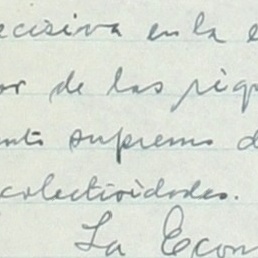 ecisiva en la e
or de las riqu
ento supremo d
colectividades.
La Econ